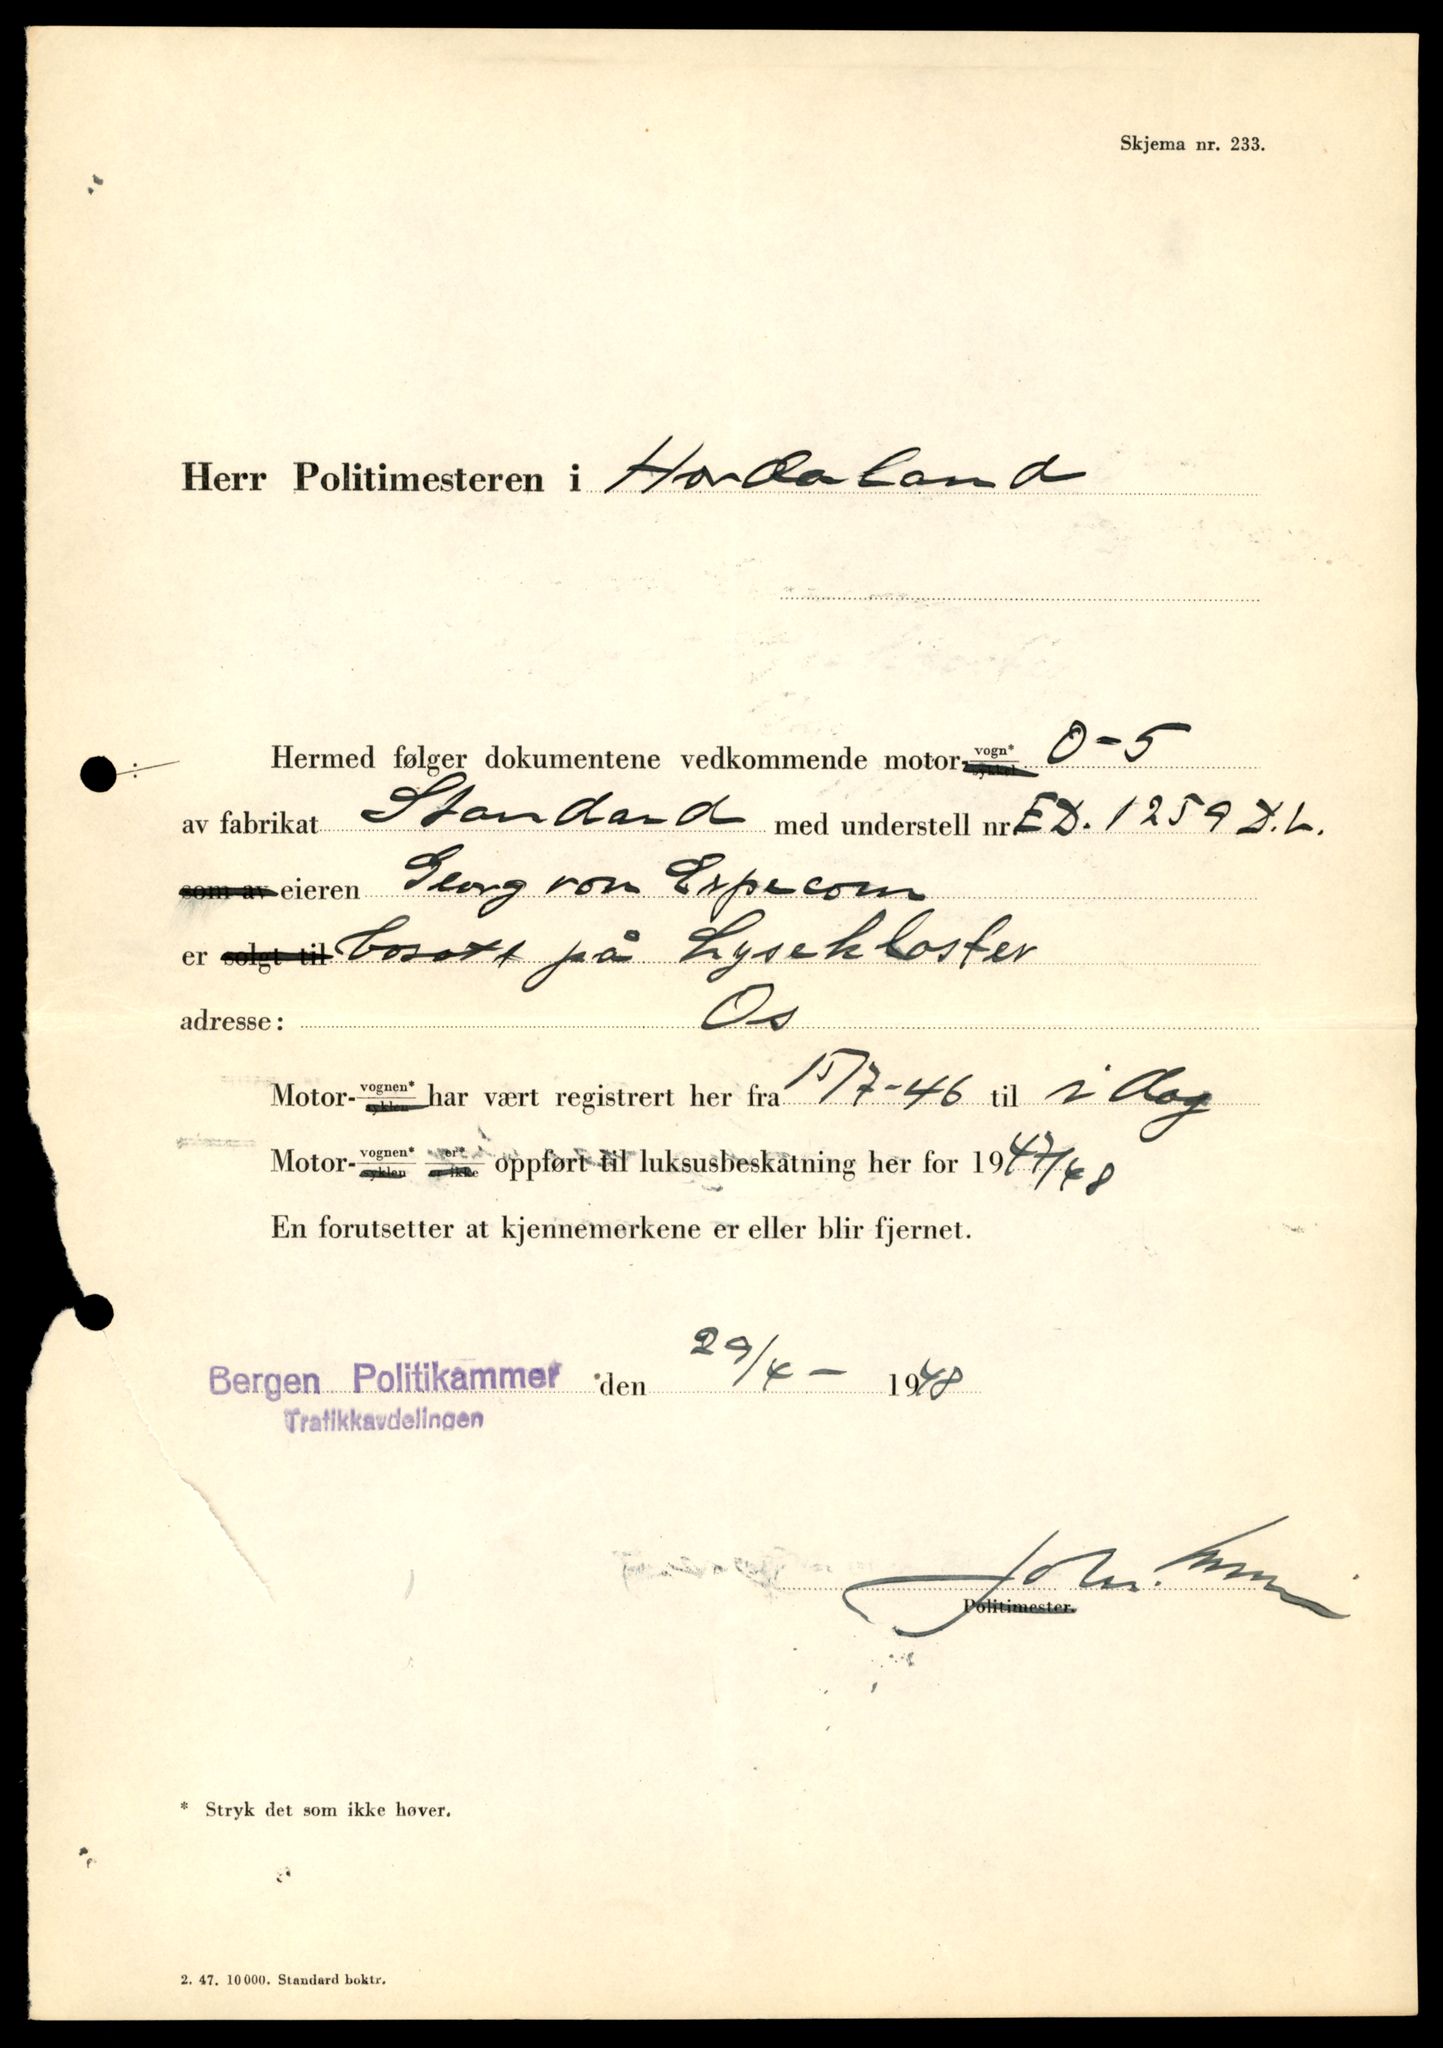 Skjema nr. 233.
Herr Politimesteren i Hordaland
Hermed følger dokumentene vedkommende motor- vogn* sykkel O-5
av fabrikat Standard med understell nr. ED. 1259 D.L.
som av eieren Georg von
er solgt til bosatt på Lysekloster
adresse: Os
Motor- vognen* syklen har vært registrert her fra 15/7-46 til i dag
Motor- vognen* syklen er* er ikke oppført til luksusbeskatning her for 1947/48
En forutsetter at kjennemerkene er eller blir fjernet.
Bergen Politikammer den 29/4 - 1948
Trafikkavdelingen
Politimester.
* Stryk det som ikke høver.
2. 47. 10 000. Standard boktr.